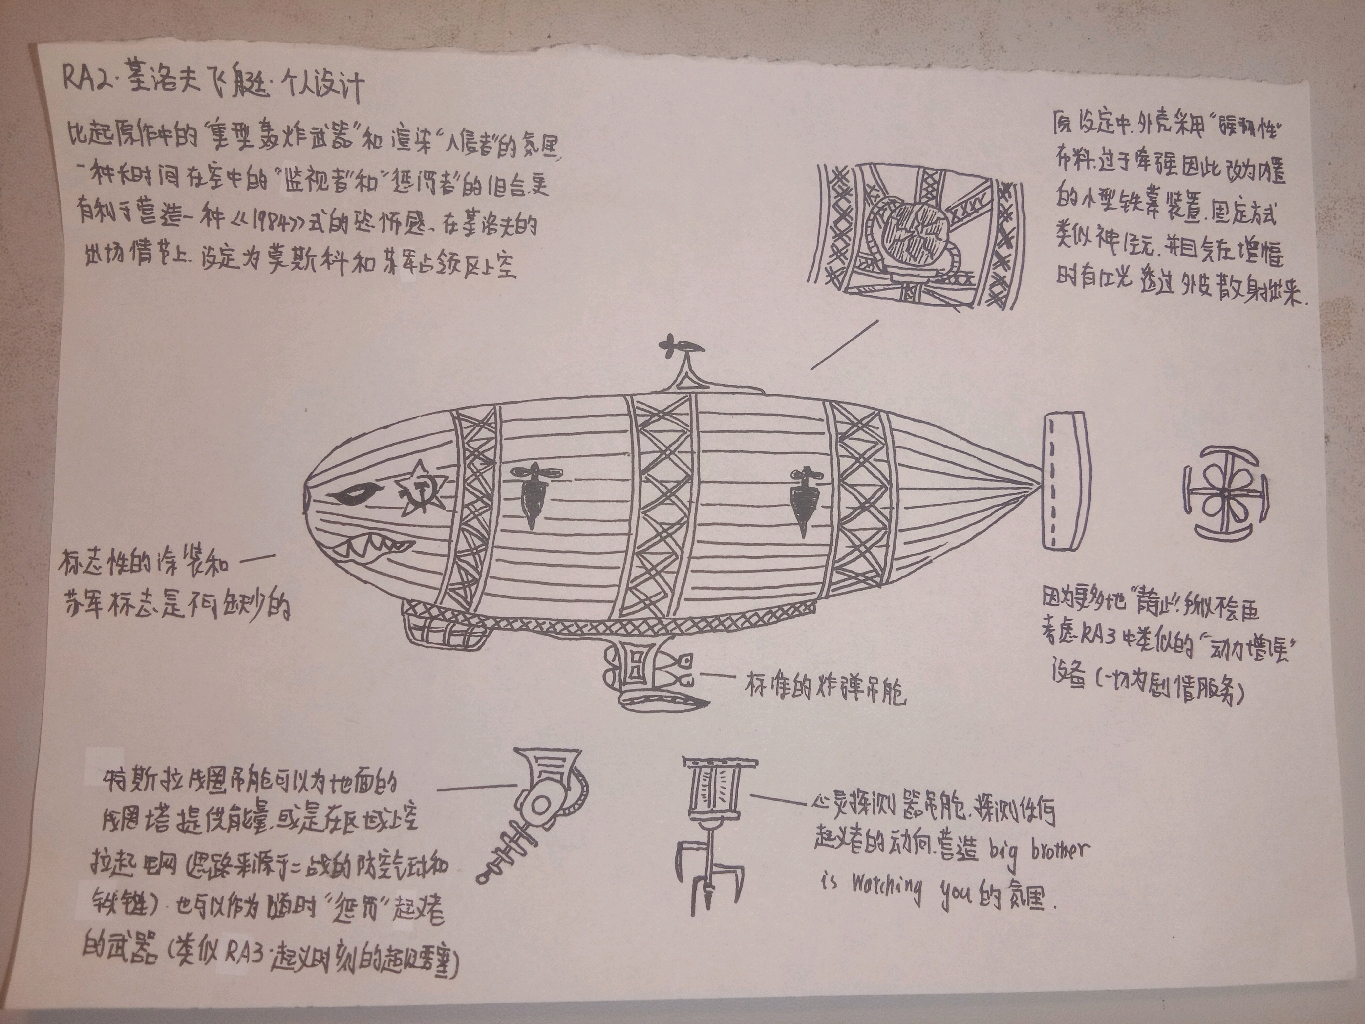 RA2·基洛夫飞艇·个人设计
比起原作中的"重型轰炸武器"和渲染"入侵者"的氛围,
一种长时间在空中的"监视者"和"惩罚者"的组合更
有利于营造一种《1984》式的恐怖感。在基洛夫的
出场情节上,设定为莫斯科和苏军占领区上空
原设定中,外壳采用"
布料过于牵强因此改为内置
的小型铁幕装置,固定方式
类似神经元,并且会在增幅
时有红光透过外皮散射出来.
标志性的涂装和
苏军标志是不可缺少的
因为更多地"静止",所以不会再
考虑RA3中类似的"动力增强"
设备(一切为剧情服务)
标准的炸弹吊舱
特斯拉线圈吊舱可以为地面的
线圈塔提供能量,或是在区域上空
拉起电网(思路来源于二战的防空气球和
铁链)也可以作为随时"惩罚"起义者
的武器(类似RA3·起义时刻的
心灵探测器吊舱,探测任何
起义者的动向,营造big brother
is watching you的氛围.